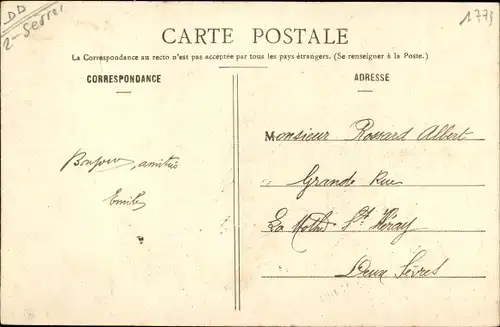 DD
2-Sèvres
1773
CARTE POSTALE
La Correspondance au recto n'est pas acceptée par tous les pays étrangers. (Se renseigner à la Poste.)
CORRESPONDANCE
ADRESSE
Bonjour, amitiés
Emile
Monsieur Rossard Albert
Grande Rue
La Mothe St Héray
Deux Sèvres